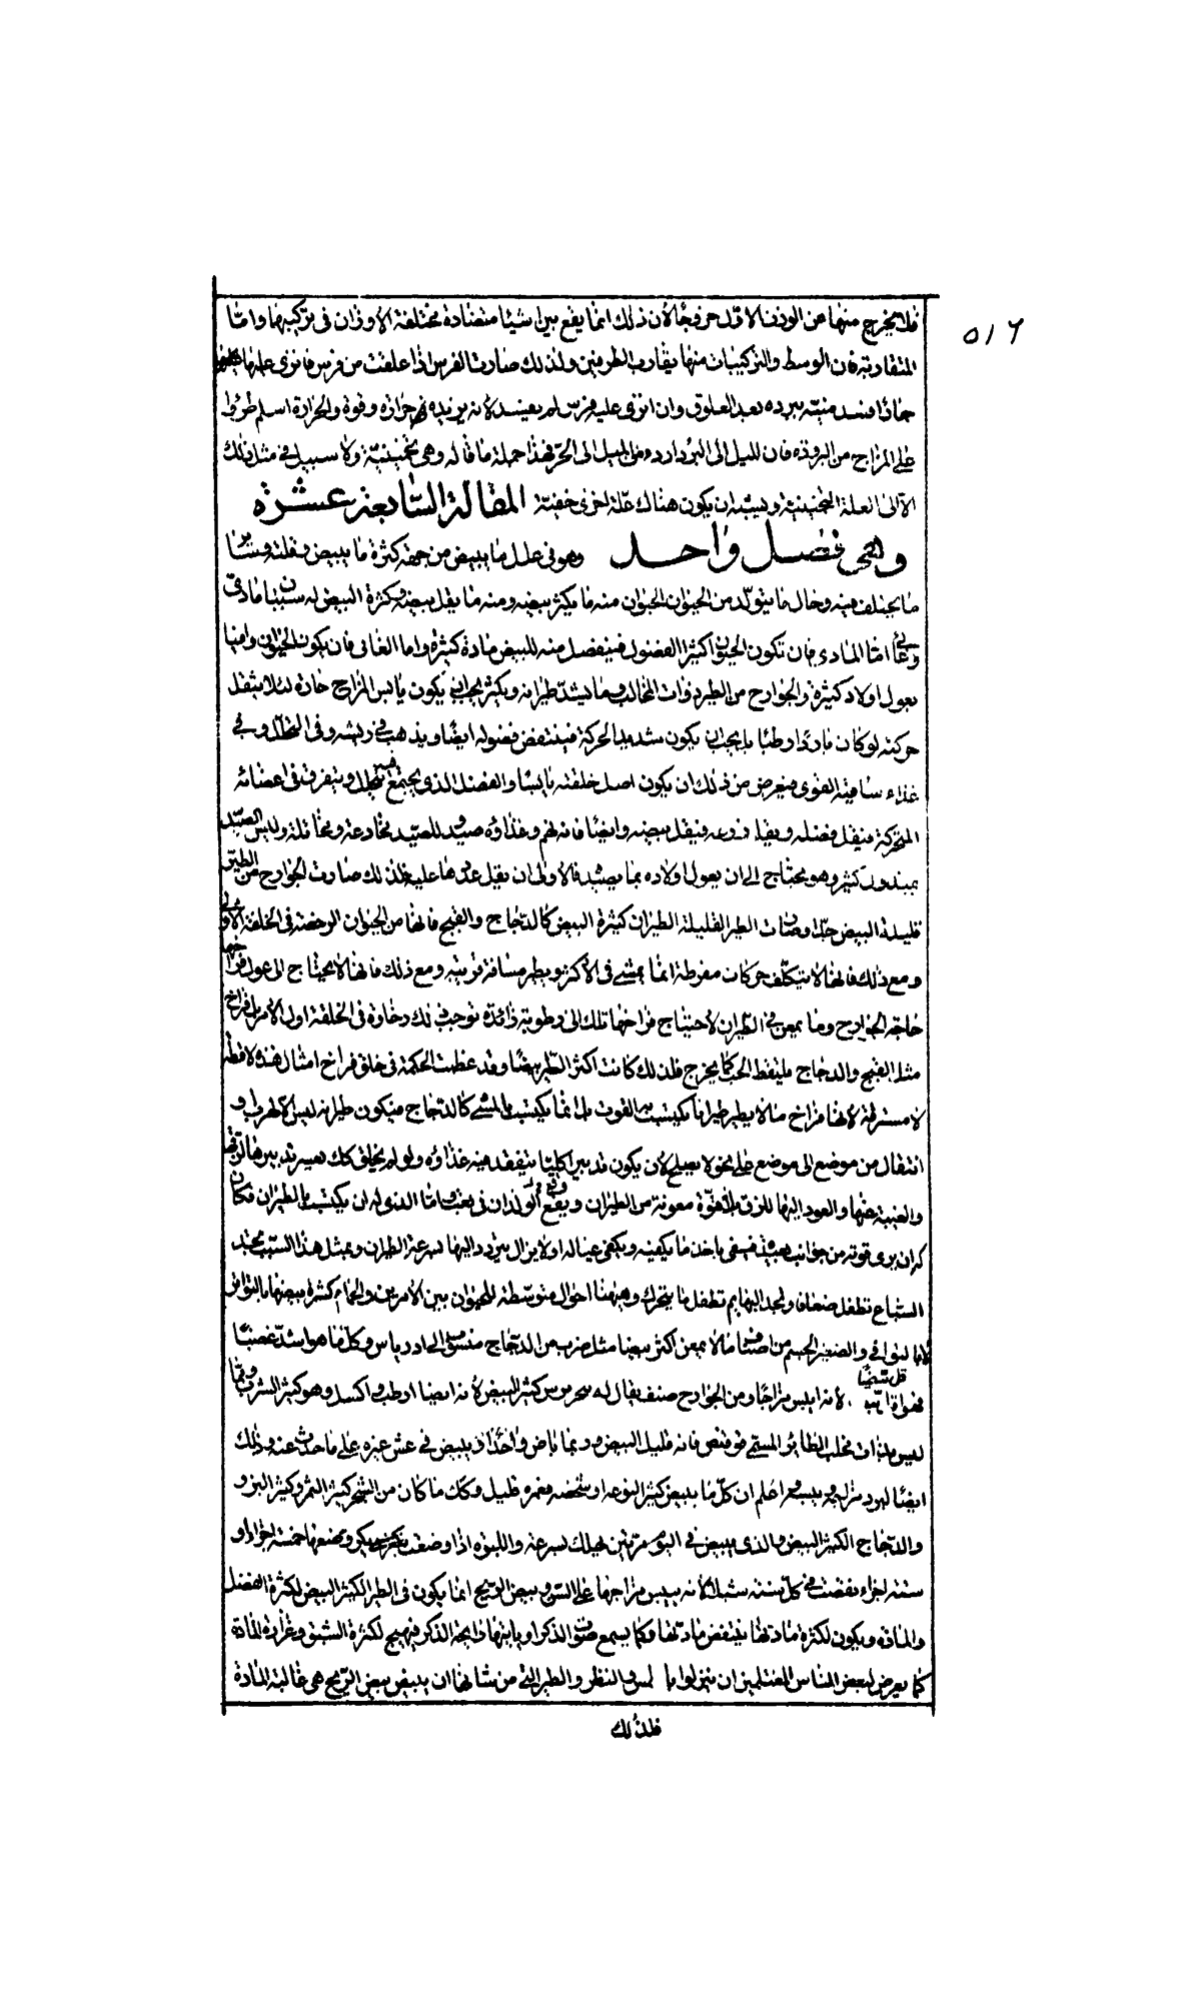 ٥١٦
فلا يخرج منها عن الوزن الاول خروجا لان ذلك انما يقع بين اشياء متضادة مختلفة الاوزان فى تركيبها واما
المتقاربة فان الوسط والتركيبات منها يقارب الطرفين ولذلك صارت الفرس اذا علقت من فرس فانزى عليها
حمار افسد منيته ببرده بعد العلوق وان انزى عليه فرس لم يفسد لانه يزيده حرارة وقوة والحرارة اسلم طروا
على المزاج من البرودة فان الميل الى البرد اردء من الميل الى الحر فهذا جملة ما قاله وهى تخمينية ولا سبيل فى مثل ذلك
الا الى العلة التخمينية ويشبه ان يكون هناك علة اخرى خفية المقالة السابعة عشرة
وهى فصل واحد وهو فى علل ما يبيض من جهة كثرة ما يبيض وقلته وسائر
ما يختلف فيه وحال ما يتولد من الحيوان الحيوان منه ما يكثر بيضه ومنه ما يقل بيضه وكثرة البيض له سببان مادى
وغائى اما المادى فان تكون الحيوان اكثر الفضول فينفصل منه للبيض مادة كثيرة واما الغائى فان يكون الحيوان وافيا
بعول اولاد كثيرة والجوارح من الطير ذوات المخالب وما يشتد طيرانه ويكثر يجب ان يكون يابس المزاج حاره لئلا يثقل
حركته لو كان باردا رطبا بل يجب ان يكون شديد الحركة فينتفض فضوله ايضا ويذهب فى ريشه وفى التحلل وفى
غذاء سائمة القوى فيعرض من ذلك ان يكون اصل خلقته يابسا والفضل الذى يجتمع فيه يتحلل ويتفرق فى اعضائه
المتحركة فيقل فضله ويقل زرعه فيقل بيضه وايضا فانه نهم وغذاؤه صيود للصيد مخادعة ومخاتلة وليس الصيد
بمبذول كثير وهو محتاج الى ان يعول اولاده بما يصيد فالاولى ان يقل عددها عليه فلذلك صارت الجوارح من الطير
قليلة البيض جدا وصارت الطير القليلة الطيران كثيرة البيض كالدجاج والقبج فانها من الحيوان الرخصة فى الخلقة الاولى
ومع ذلك فانها لا تتكلف حركات مفرطة انما يمشى فى الاكثر ويطير مسافة قريبة ومع ذلك فانها لا يحتاج الى عول فراخها
حاجة الجوارح وما يمعن فى الطيران لاحتياج فراخها تلك الى رطوبة زائدة توجب فى ذلك رخاوة فى الخلقة اول الامر بل فراخ
مثل القبج والدجاج يلتقط الحب كما يخرج فلذلك كانت اكثر الطير بيضا وقد عظمت الحكمة فى خلق فراخ امثال هذه لاقطة
لا مسترقة لانها فراخ ما لا يطير طيرانا يكتسب به القوت بل انما يكتسب بالمشى كالدجاج فيكون طيرانه ليس الا لهرب او
انتقال من موضع الى موضع على نحو لا يصلح لان يكون تدبيرا كليا يتفقد منه غذاؤه ولو لم يخلق كك لعسر تدبيرها
والغيبة عنها والعود اليها للزق بلا قوة معونة من الطيران ويقع الولدان فى تعب واما الذى له ان يكتسب بالطيران فكان
كر ان يرى قوته من جوانب بعيدة فيسعى ياخذ ما يكفيه ويكفى عياله او لا يزال يتردد اليها بسرعة الطيران وبمثل هذا السبب تجد
السباع تطفل ضعافا وتجد البهائم تطفل ما يتحرك وهيهنا احوال متوسطة للحيوان بين الامرين والحمام كثرة بيضها بالتواتر
لا بالتوافى والصغير الجسم من اصناف ما لا يمعن اكثر بيضا مثل ضرب من الدجاج منسوب الى ادرياس وكل ما هو اشد غضبا
فهو اقل سمنا لانه ايبس مزاجا ومن الجوارح صنف يقال له كثير البيض لانه ايضا ارطب واكسل وهو كثير الشرب ومما
ليس بذات مخلب الطائر المسمى قوقنص فانه قليل البيض وربما باض واحدا او يبيض فى عش غيره على ما حدث عنه وذلك
ايضا لبرد مزاجه ويبسه واعلم ان كل ما يبيض كثير النوعه او شخصه فعمره قليل وكك ما كان من الشجر كثير الثمر وكثير البزر و
والدجاج الكثير البيض والذى يبيض فى اليوم مرتين يهلك بسرعة واللبوة اذا وضعت بكرها وضعها خمسة اجراء او
ستة اجراء نقصت فى كل سنة شبلا لانه ييبس مزاجها على السن وبيض الريح انما يكون فى الطير الكثير البيض لكثرة الفضل
والمادة ويكون لكثرة مادتها ينتفض مادتها وكما يسمع صوت الذكر او ياتيها رائحة الذكر فيهيج لكثرة الشبق وغزارة المادة
كما يعرض لبعض الناس المغتلمين ان ينزلوا باللمس والنظر والطير التى من شانها ان يبيض بيض الريح هى غالبة المادة
فلذلك